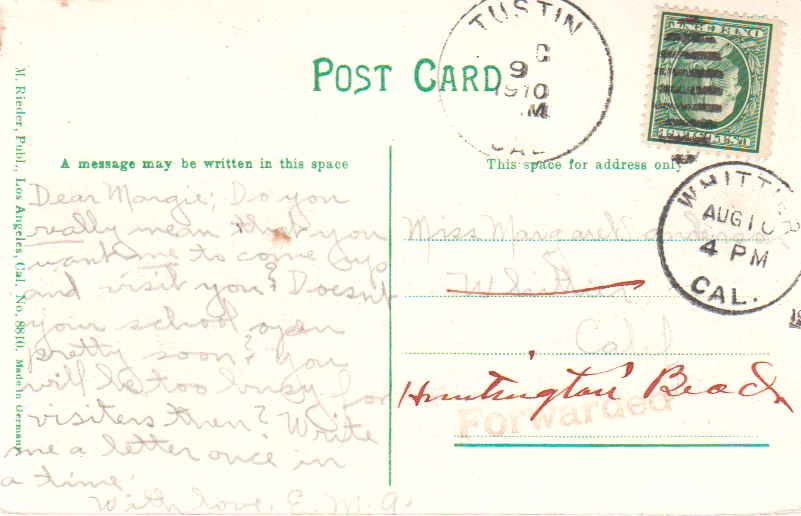 M. Rieder, Publ., Los Angeles, Cal. No. 8810. Made in Germany
POST CARD
TUSTIN
9
1910
M
CAL
A message may be written in this space
This space for address only
WHITTIER
AUG 10
4 PM
CAL.
Dear Margie; Do you
really mean that you
want me to come up
and visit you? Doesnt
your school open
pretty soon? You
will be too busy for
visiters then? Write
me a letter once in
a time.
With love, E. M. G.
Miss Margaret Anderson
Whittier,
Cal
Huntington Beach
Forwarded